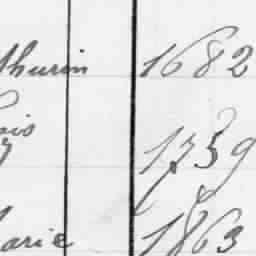 thurin 1682
ois 1759
arie 1863